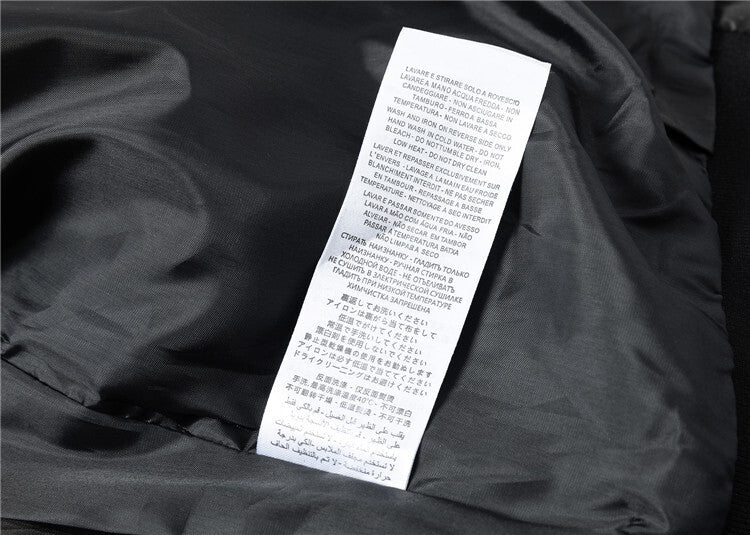 LAVARE E STIRARE SOLO A ROVESCIO
LAVARE A MANO ACQUA FREDDA - NON
CANDEGGIARE - NON ASCIUGARE IN
TAMBURO - FERRO A BASSA
TEMPERATURA - NON LAVARE A SECCO
WASH AND IRON ON REVERSE SIDE ONLY
HAND WASH IN COLD WATER - DO NOT
BLEACH - DO NOT TUMBLE DRY - IRON,
LOW HEAT - DO NOT DRY CLEAN
LAVER ET REPASSER EXCLUSIVEMENT SUR
L'ENVERS - LAVAGE A LA MAIN EAU FROIDE
BLANCHIMENT INTERDIT - NE PAS SECHER
EN TAMBOUR - REPASSAGE A BASSE
TEMPERATURE - NETTOYAGE A SEC INTERDIT
LAVAR E PASSAR SOMENTE DO AVESSO
LAVAR A MÃO COM ÁGUA FRIA - NÃO
ALVEJAR - NÃO SECAR. EM TAMBOR
PASSAR A TEMPERATURA BATXA
NÃO LIMPAR A SECO
СТИРАТЬ НАИЗНАНКУ - ГЛАДИТЬ ТОЛЬКО
НАИЗНАНКУ - РУЧНАЯ СТИРКА В
ХОЛОДНОЙ ВОДЕ - НЕ ОТБЕЛИВАТЬ
НЕ СУШИТЬ В ЭЛЕКТРИЧЕСКОЙ СУШИЛКЕ
ГЛАДИТЬ ПРИ НИЗКОЙ ТЕМПЕРАТУРЕ
ХИМЧИСТКА ЗАПРЕЩЕНА
裏返してお洗いください
アイロンは裏から当て布をして
低温でがけてください
常温で手洗いしてください
漂白剤を使用しないでください
静止型乾燥機の使用をお勧めします
アイロンは必ず低温で当ててください
ドライクリーニングはお避けください
反面洗涤 - 仅反面熨烫
手洗-最高洗涤温度40°C - 不可漂白
不可翻转干燥 - 低温熨烫 - 不可干洗
يقلب على الظهر قبل الغسيل - قم بالكي فقط
على الظهر
لا تستخدم مجفف الملابس -الكي بدرجة
حرارة منخفضة - لا تم بالتنظيف الجاف